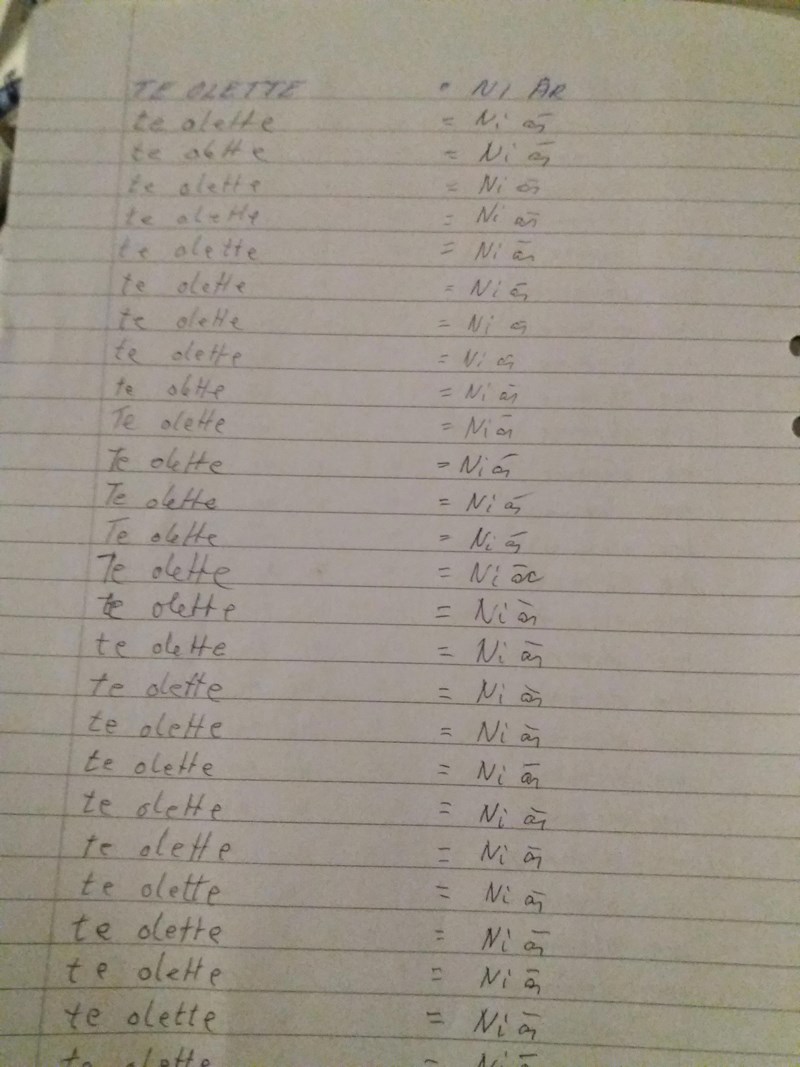 TE OLETTE = NI ÄR
te olette = Ni är
te olette = Ni är
te olette = Ni är
te olette = Ni är
te olette = Ni är
te olette = Ni är
te olette = Ni är
te olette = Ni är
te olette = Ni är
Te olette = Ni är
Te olette = Ni är
Te olette = Ni är
Te olette = Ni är
Te olette = Ni är
te olette = Ni är
te olette = Ni är
te olette = Ni är
te olette = Ni är
te olette = Ni är
te olette = Ni är
te olette = Ni är
te olette = Ni är
te olette = Ni är
te olette = Ni är
te olette = Ni är
te olette = Ni är